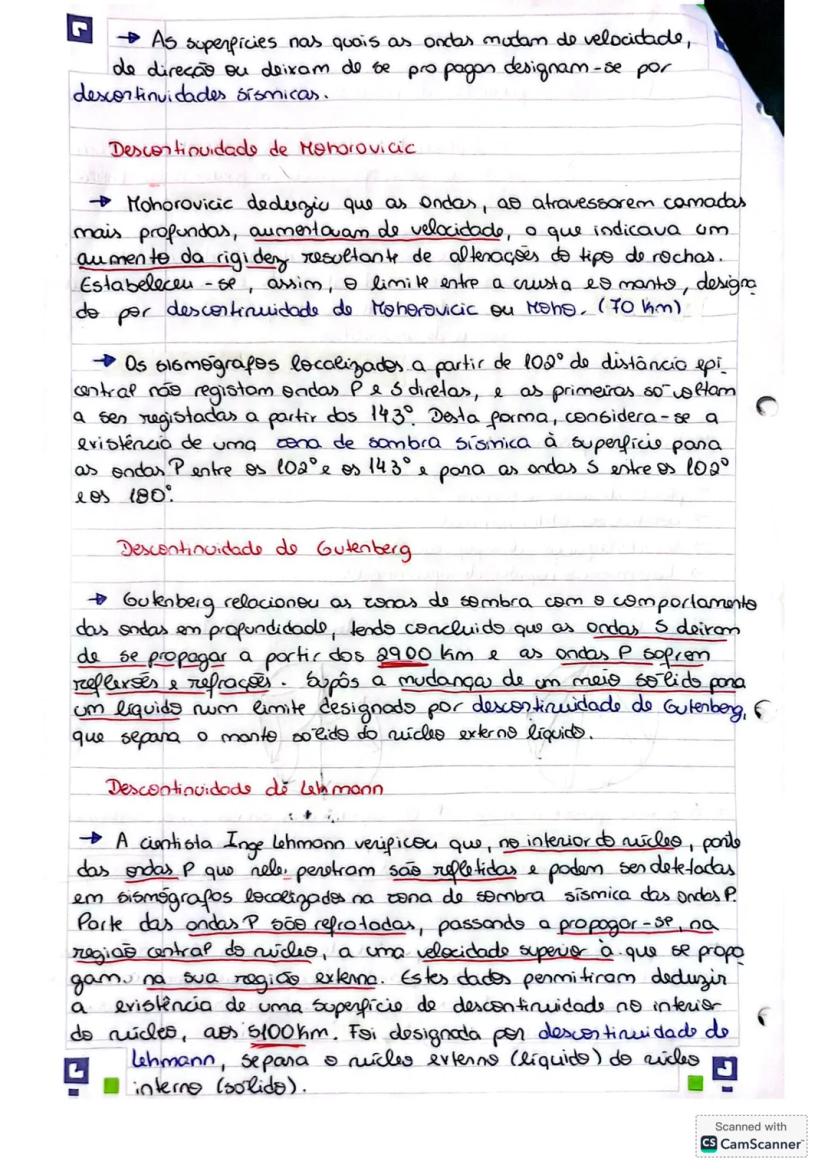 → As superfícies nas quais as ondas mudam de velocidade,
de direcção ou deixam de se propagar designam-se por
descontinuidades sísmicas.
Descontinuidade de Mohorovicic
→ Mohorovicic deduziu que as ondas, ao atravessarem camadas
mais profundas, aumentavam de velocidade, o que indicava um
aumento da rigidez resultante de alterações do tipo de rochas.
Estabeleceu-se, assim, o limite entre a crusta e o manto, designa
do por descontinuidade de Mohorovicic ou Moho. (70 Km)
→ Os sismógrafos localizados a partir de 102° de distância epi
central não registam ondas P e S diretas, e as primeiras só voltam
a ser registadas a partir dos 143°. Desta forma, considera-se a
existência de uma zona de sombra sísmica à superfície para
as ondas P entre os 102° e os 143° e para as ondas S entre os 102°
e os 180°.
Descontinuidade de Gutenberg
→ Gutenberg relacionou as zonas de sombra com o comportamento
das ondas em profundidade, tendo concluido que as ondas S deixam
de se propagar a partir dos 2900 km e as ondas P sofrem
reflexões e refrações. Supôs a mudança de um meio sólido para
um líquido num limite designado por descontinuidade de Gutenberg,
que separa o manto sólido do núcleo externo líquido.
Descontinuidade de Lehmann
→ A cientista Inge Lehmann verificou que, no interior do núcleo, parte
das ondas P que nele penetram são refletidas e podem ser detetadas
em sismógrafos localizados na zona de sombra sísmica das ondas P.
Parte das ondas P são refratadas, passando a propagar-se, na
região central do núcleo, a uma velocidade superior à que se propa
gam na sua região externa. Estes dados permitiram deduzir
a existência de uma superfície de descontinuidade no interior
do núcleo, aos 5100 km. Foi designada por descontinuidade de
Lehmann, separa o núcleo externo (líquido) do núcleo
interno (sólido).
Scanned with
CS CamScanner